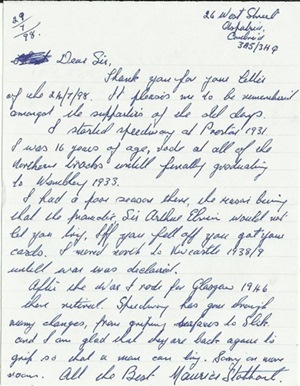 29/7/98.
26 West Street
Aspatria,
Cumbria
Dear Sir,
Thank you for your letter
of the 26/7/98. It pleases me to be remembered
amongst the supporters of the old days.
I started speedway at Preston 1931.
I was 16 years of age, rode at all of the
Northern tracks untill finally graduating
to Wembley 1933.
I had a poor season there, the reason being
that the promoter, Sir Arthur Elvin would not
let you lay, If you fell off you got your
cards. I moved north to Newcastle 1938/9
untill war was declared.
After the war I rode for Glasgow 1946
then retired. Speedway has gone through
many changes, from gripping surfaces to Slick.
and I am glad that they are back again to
grip so that a man can lay. Sorry no more
room. All the Best Maurice Stobbart.